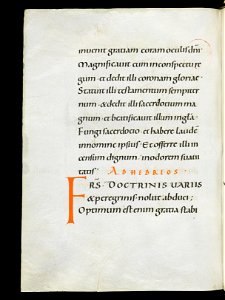 inuenit gratiam coram oculis dn̄i
Magnificauit eum in conspectu re
gum · & dedit illi coronam gloriae ·
Statuit illi testamentum sempiter
num · & dedit illi sacerdotium ma
gnum · & beatificauit illum in gl̄a ·
Fungi sacerdotio et habere laudē
in nomine ipsius · Et offerre illi in
censum dignum · in odorem suaui
tatis · AD HEBREOS
FRS̄ · DOCTRINIS UARIIS
& peregrinis nolite abduci ·
Optimum est enim gratia stabi